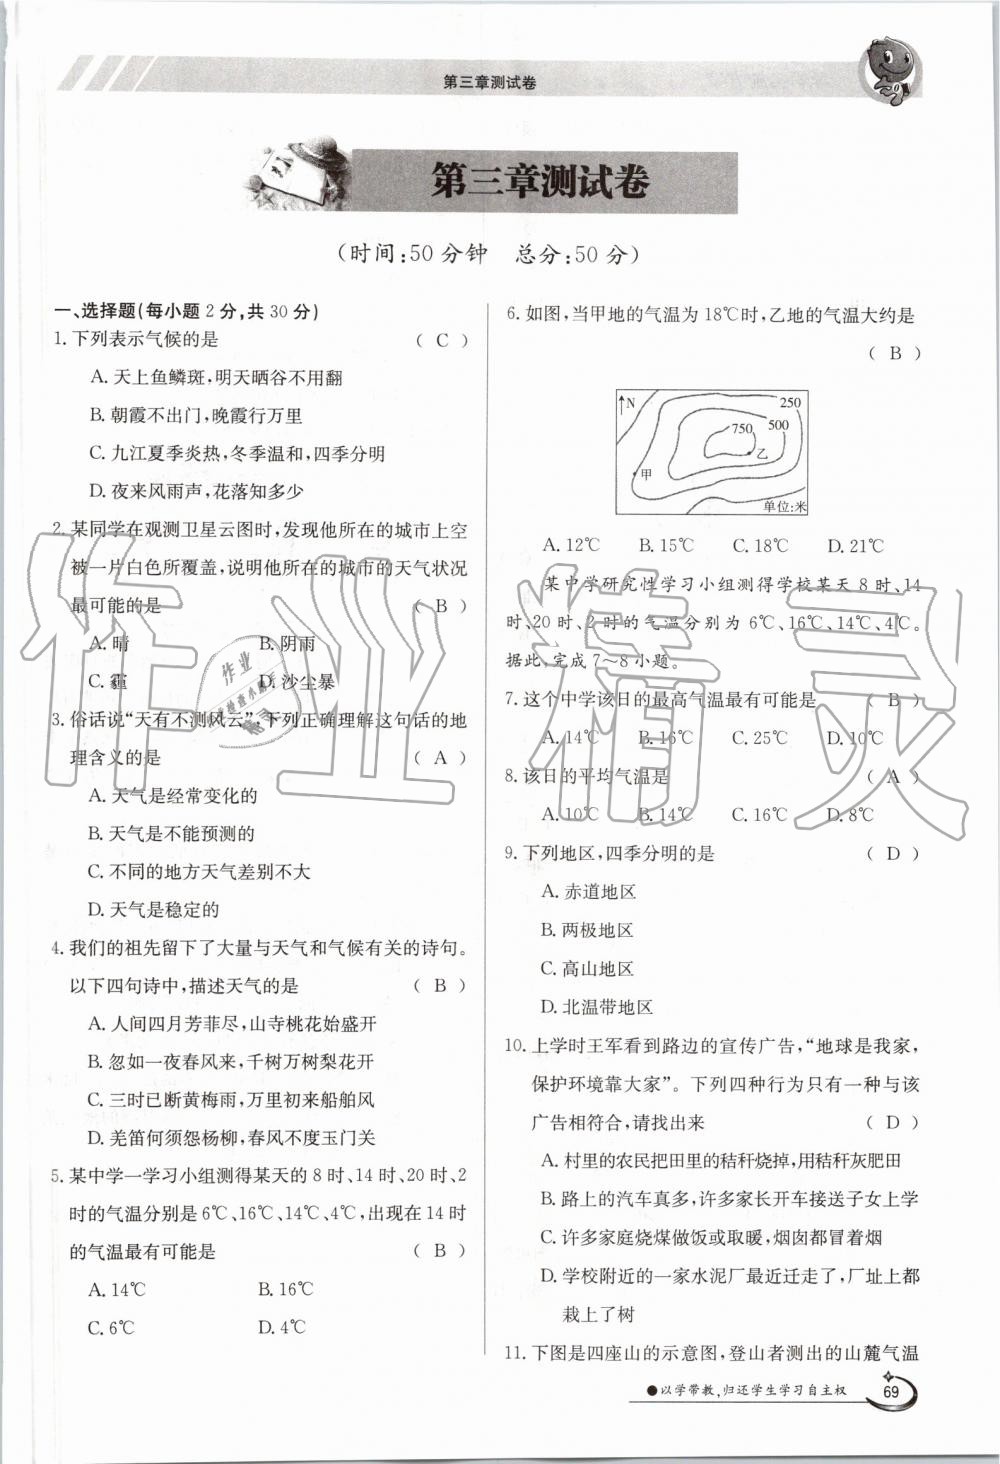 第三章测试卷
第三章测试卷
(时间:50分钟 总分:50分)
一、选择题(每小题2分,共30分)
1.下列表示气候的是 ( C )
A.天上鱼鳞斑,明天晒谷不用翻
B.朝霞不出门,晚霞行万里
C.九江夏季炎热,冬季温和,四季分明
D.夜来风雨声,花落知多少
2.某同学在观测卫星云图时,发现他所在的城市上空
被一片白色所覆盖,说明他所在的城市的天气状况
最可能的是 ( B )
A.晴 B.阴雨
C.霾 D.沙尘暴
3.俗话说“天有不测风云”,下列正确理解这句话的地
理含义的是 ( A )
A.天气是经常变化的
B.天气是不能预测的
C.不同的地方天气差别不大
D.天气是稳定的
4.我们的祖先留下了大量与天气和气候有关的诗句。
以下四句诗中,描述天气的是 ( B )
A.人间四月芳菲尽,山寺桃花始盛开
B.忽如一夜春风来,千树万树梨花开
C.三时已断黄梅雨,万里初来船舶风
D.羌笛何须怨杨柳,春风不度玉门关
5.某中学一学习小组测得某天的8时、14时、20时、2
时的气温分别是6℃、16℃、14℃、4℃,出现在14时
的气温最有可能是 ( B )
A.14℃ B.16℃
C.6℃ D.4℃
6.如图,当甲地的气温为18℃时,乙地的气温大约是
( B )
N
250
500
750
乙
甲
单位:米
A.12℃ B.15℃ C.18℃ D.21℃
某中学研究性学习小组测得学校某天8时、14
时、20时、2时的气温分别为6℃、16℃、14℃、4℃。
据此,完成7～8小题。
7.这个中学该日的最高气温最有可能是 ( B )
A.14℃ B.16℃ C.25℃ D.10℃
8.该日的平均气温是 ( A )
A.10℃ B.14℃ C.16℃ D.8℃
9.下列地区,四季分明的是 ( D )
A.赤道地区
B.两极地区
C.高山地区
D.北温带地区
10.上学时王军看到路边的宣传广告,“地球是我家,
保护环境靠大家”。下列四种行为只有一种与该
广告相符合,请找出来 ( D )
A.村里的农民把田里的秸秆烧掉,用秸秆灰肥田
B.路上的汽车真多,许多家长开车接送子女上学
C.许多家庭烧煤做饭或取暖,烟囱都冒着烟
D.学校附近的一家水泥厂最近迁走了,厂址上都
栽上了树
11.下图是四座山的示意图,登山者测出的山麓气温
●以学带教,归还学生学习自主权
69
作业精灵